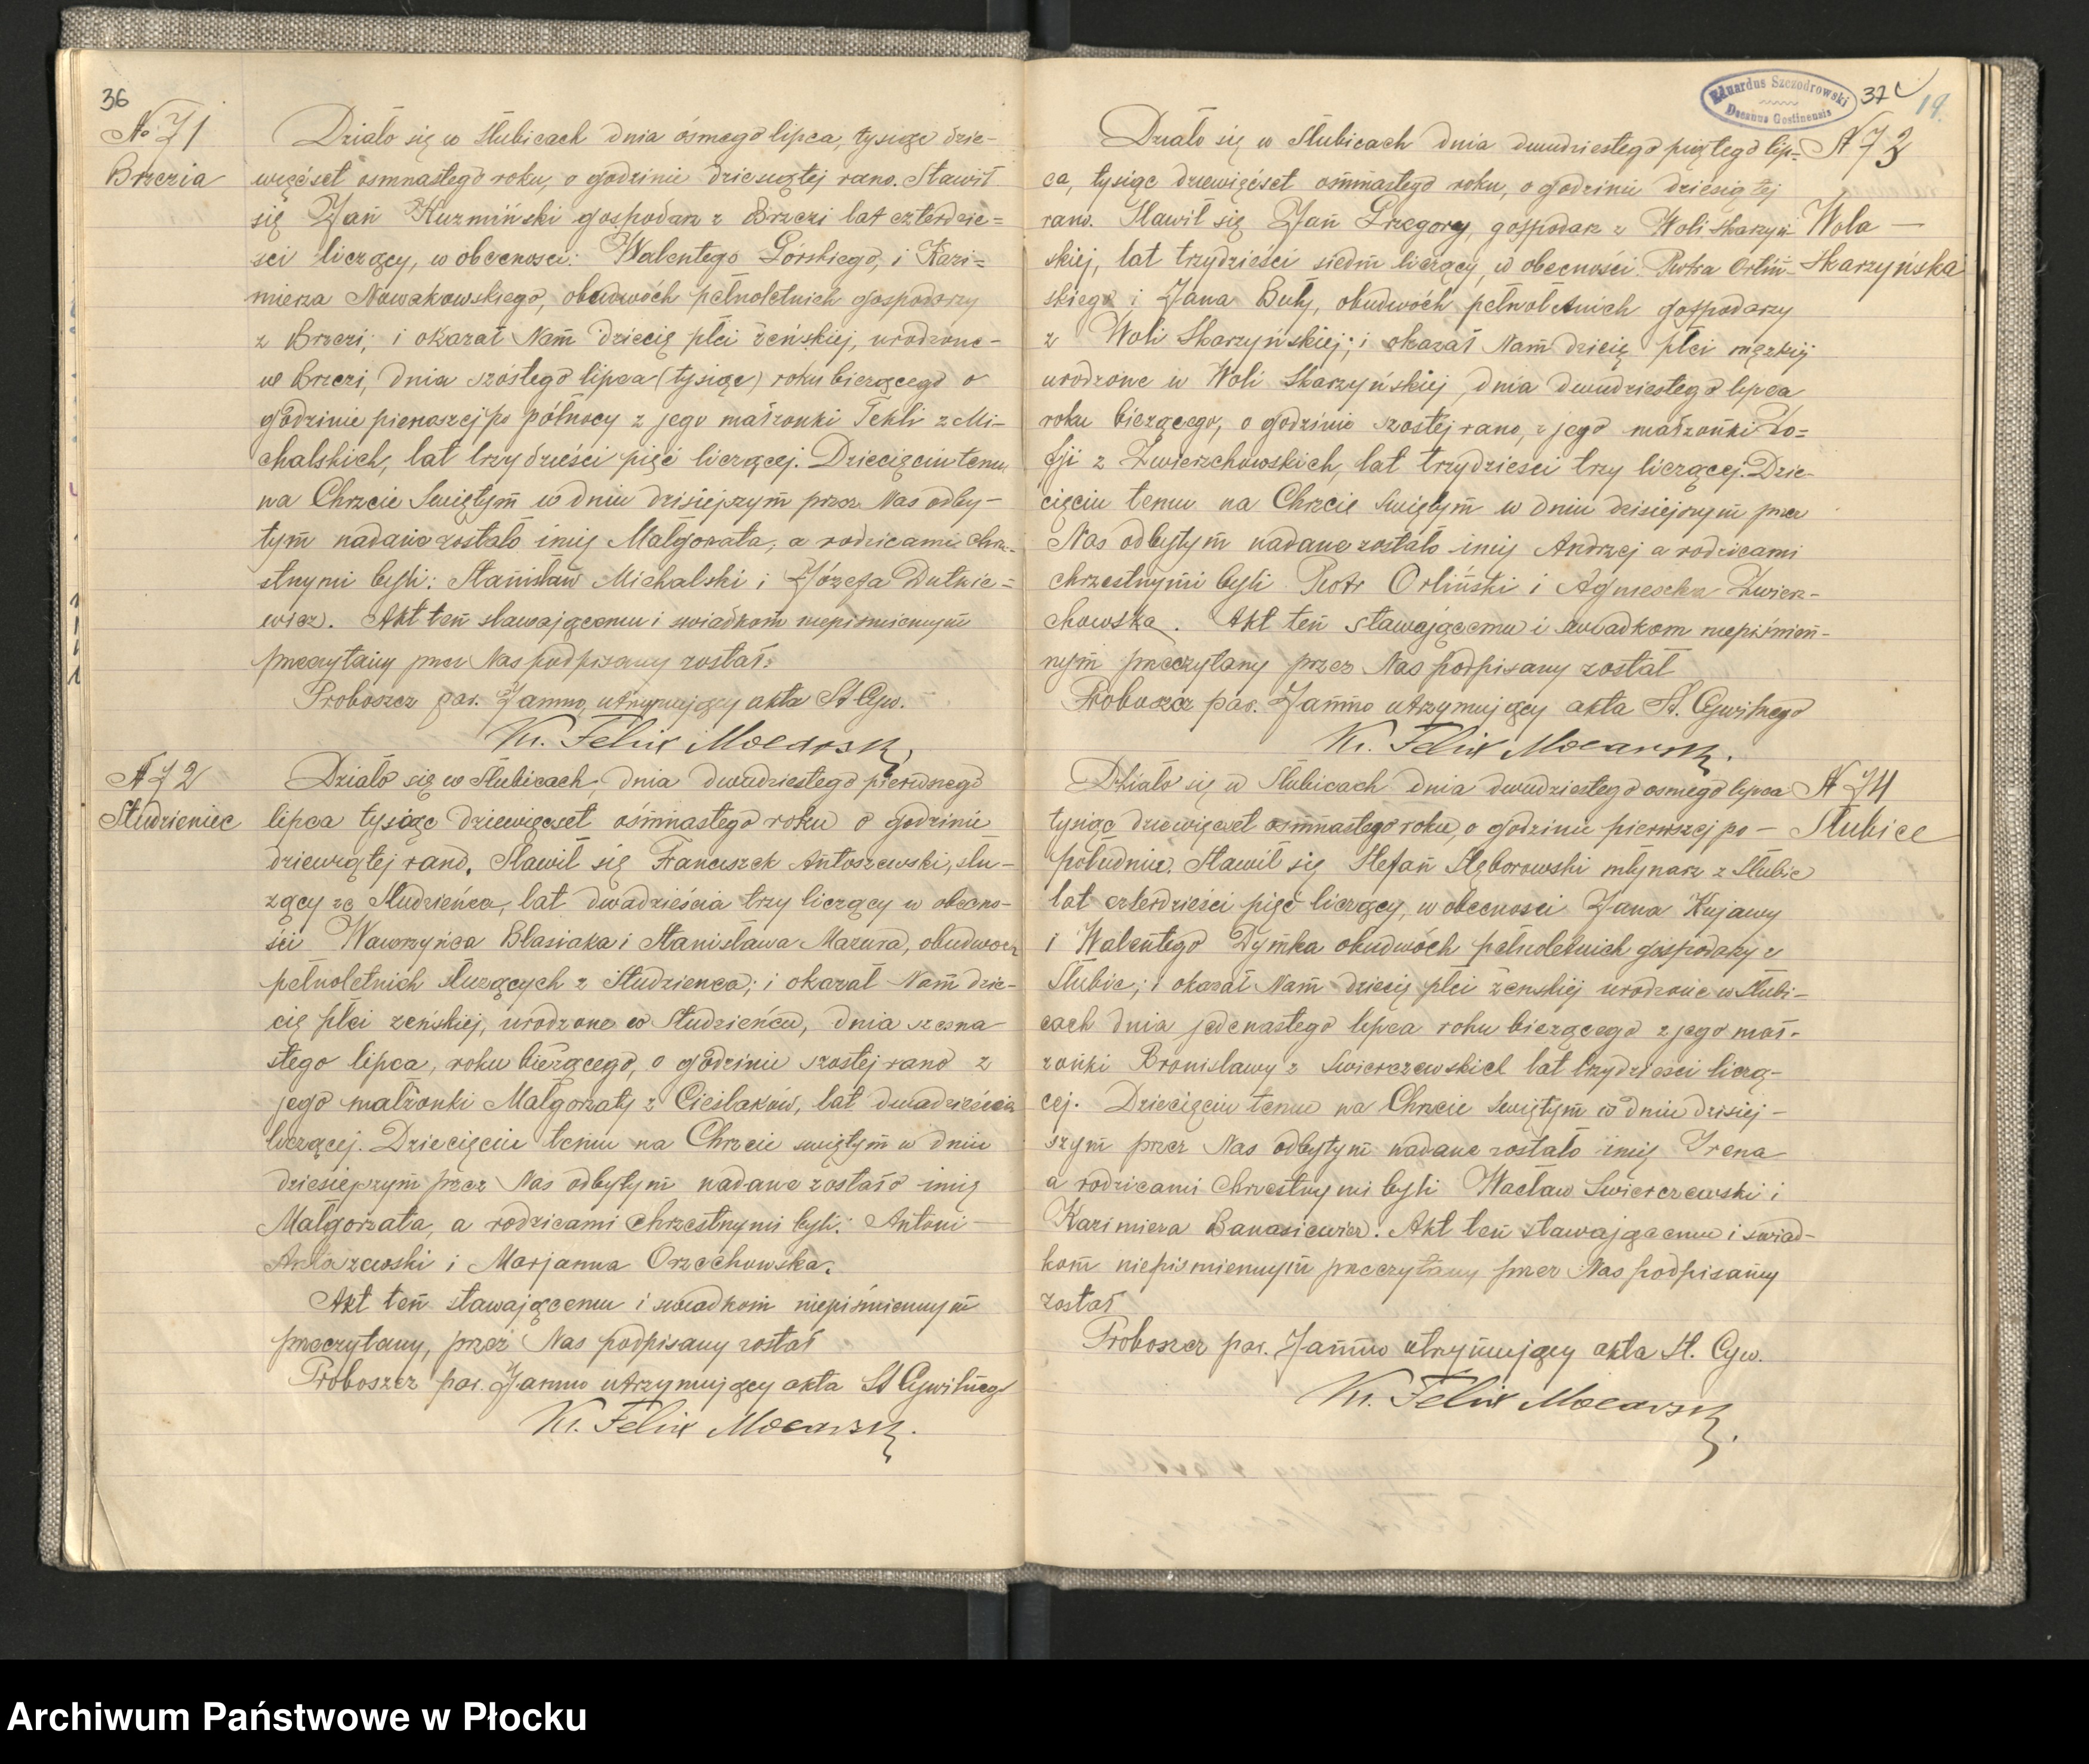 36
No 71
Brzezia
Działo się w Słubicach dnia ósmego lipca, tysiąc dzie-
więćset osmnastego roku, o godzinie dziesiątej rano. Stawił
się Jan Kuzmiński gospodarz z Brzezi lat czterdzie=
sci liczący, w obecnosci: Walentego Górskiego, i Kazi=
mierza Nowakowskiego, obudwóch pełnoletnich gospodarzy
z Brzezi; i okazał Nam dziecię płci żeńskiej, urodzone-
we Brzezi, dnia szóstego lipca (tysiąc) roku bieżącego o
godzinie pierwszej po północy z jego małżonki Tekli z Mi-
chalskich, lat trzydzieści pięć liczącej. Dziecięciu temu
na Chrzcie Świętym w dniu dzisiejszym przez Nas odby-
tym nadane zostało imię Małgorzata, a rodzicami chrze-
stnymi byli: Stanisław Michalski i Józefa Dutkie=
wicz. Akt ten stawającemu i swiadkom niepismiennym
przeczytany przez Nas podpisany został.
Proboszcz par. Jamno, utrzymujący akta St. Cyw.
Ks. Felix Mocarski
N 72
Studzieniec
Działo się w Słubicach, dnia dwudziestego pierwszego
lipca tysiąc dziewięcset ósmnastego roku o godzinie
dziewiątej rano. Stawił się Franciszek Antoszewski, słu-
żący ze Studzieńca, lat dwadzieścia trzy liczący w obecno-
ści Wawrzyńca Blasiaka i Stanisława Mazura, obudwóch
pełnoletnich służących z Studzienca; i okazał Nam dzie-
cię płci zeńskiej, urodzone w Studzieńcu, dnia szesna-
stego lipca, roku bieżącego, o godzinie szostej rano z
jego małżonki Małgorzaty z Cieślaków, lat dwadzieścia
liczącej. Dziecięciu temu na Chrzcie swiętym w dniu
dzisiejszym przez Nas odbytym nadane zostało imię
Małgorzata, a rodzicami chrzestnymi byli: Antoni
Antoszewski i Marjanna Orzechowska.
Akt ten stawającemu i swiadkom niepiśmiennym
przeczytany, przez Nas podpisany został
Proboszcz par. Jamno utrzymujący akta St Cywilnego
Ks. Felix Mocarski.
Eduardus Szczodrowski
Decanus Gostinensis
37
19.
N 73
Wola —
Skarzyńska
Działo się w Słubicach dnia dwudziestego piątego lip=
ca, tysiąc dziewięćset osmnastego roku, o godzinie dziesiątej
rano. Stawił się Jan Grzegory, gospodarz z Woli Skarzyń-
skiej, lat trzydzieści siedm liczący, w obecności Piotra Orliń-
skiego i Jana Buły, obudwóch pełnoletnich gospodarzy
z Woli Skarzyńskiej; i okazał Nam dziecię płci męzkiej
urodzone w Woli Skarzyńskiej, dnia dwudziestego lipca
roku bieżącego, o godzinie szostej rano, z jego małżonki Zo=
fji z Zwierzchowskich, lat trzydziesci trzy liczącej. Dzie-
cięciu temu na Chrzcie Swiętym w dniu dzisiejszym przez
Nas odbytym nadane zostało imię Andrzej a rodzicami
chrzestnymi byli Piotr Orliński i Agnieszka Zwierz-
chowska. Akt ten stawającemu i swiadkom niepiśmien-
nym przeczytany przez Nas podpisany został
Proboszcz par. Jamno utrzymujący akta St. Cywilnego
Ks. Felix Mocarski.
N 74
Słubice
Działo się w Słubicach dnia dwudziestego osmego lipca
tysiąc dziewięcset osmnastego roku, o godzinie pierwszej po -
południu. Stawił się Stefan Stęborowski młynarz z Słubic
lat czterdzieści pięć liczący, w obecnosci Jana Kujawy
i Walentego Dymka obudwóch pełnoletnich gospodarzy z
Słubic; i okazał Nam dziecię płci żenskiej urodzone w Słubi-
cach dnia jedenastego lipca roku bieżącego z jego mał-
żonki Bronisławy z Swierczewskich lat trzydzieści liczą-
cej. Dziecięciu temu na Chrzcie Swiętym w dniu dzisiej-
szym przez Nas odbytym nadane zostało imię Irena
a rodzicami chrzestnymi byli Wacław Swierczewski i
Kazimiera Banasiewicz. Akt ten stawającemu i swiad-
kom niepismiennym przeczytany przez Nas podpisany
został
Proboszcz par. Jamno utrzymujący akta St. Cyw.
Ks. Felix Mocarski.
Archiwum Państwowe w Płocku